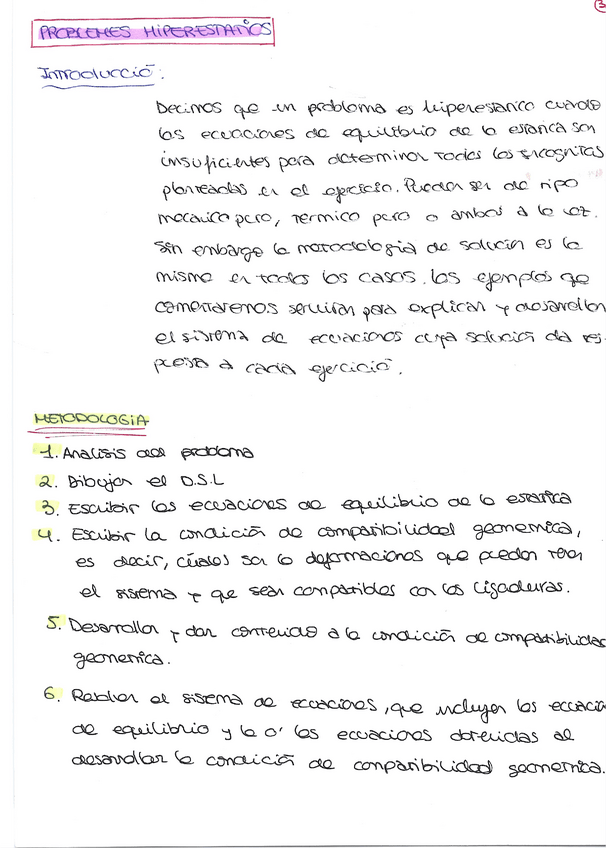 3
PROBLEMES HIPERESTATICS
INTRODUCCIÓ:
Decimos que un problema es hiperestatico cuando
las ecuaciones de equilibrio de la estatica son
insuficientes para determinar todas las incognitas
planteadas en el ejercicio. Pueden ser de tipo
mecanico puro, termico puro o ambos a la vez.
Sin embargo la metodologia de solución es la
misma en todos los casos. Los ejemplos que
comentaremos serviran para explicar y desarrollar
el sistema de ecuaciones cuya solución da res-
puesta a cada ejercicio.
METODOLOGIA
1. Analisis del problema
2. Dibujar el D.S.L
3. Escribir las ecuaciones de equilibrio de la estatica
4. Escribir la condición de compatibilidad geometrica,
es decir, cúales son la deformaciones que pueden tener
el sistema y que sean compatibles con las ligaduras.
5. Desarrollar y dar contenido a la condición de compatibilidad
geometrica.
6. Resolver el sistema de ecuaciones, que incluyen las ecuacio
de equilibrio y la o' las ecuaciones obtenidas al
desarrollar la condición de compatibilidad geometrica.